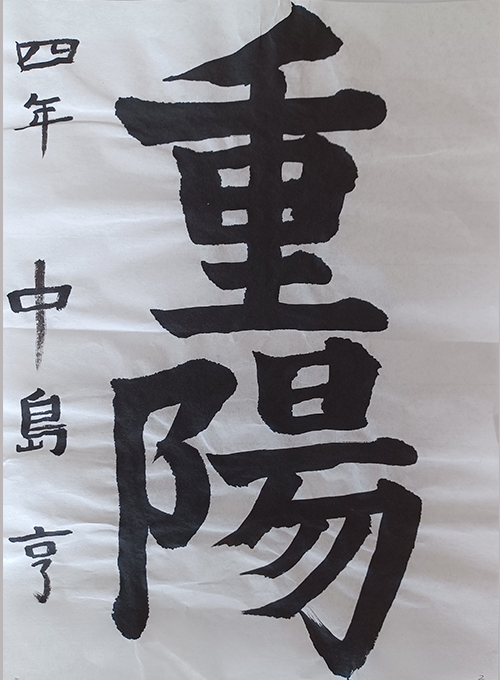 重陽
四年 中島 亨